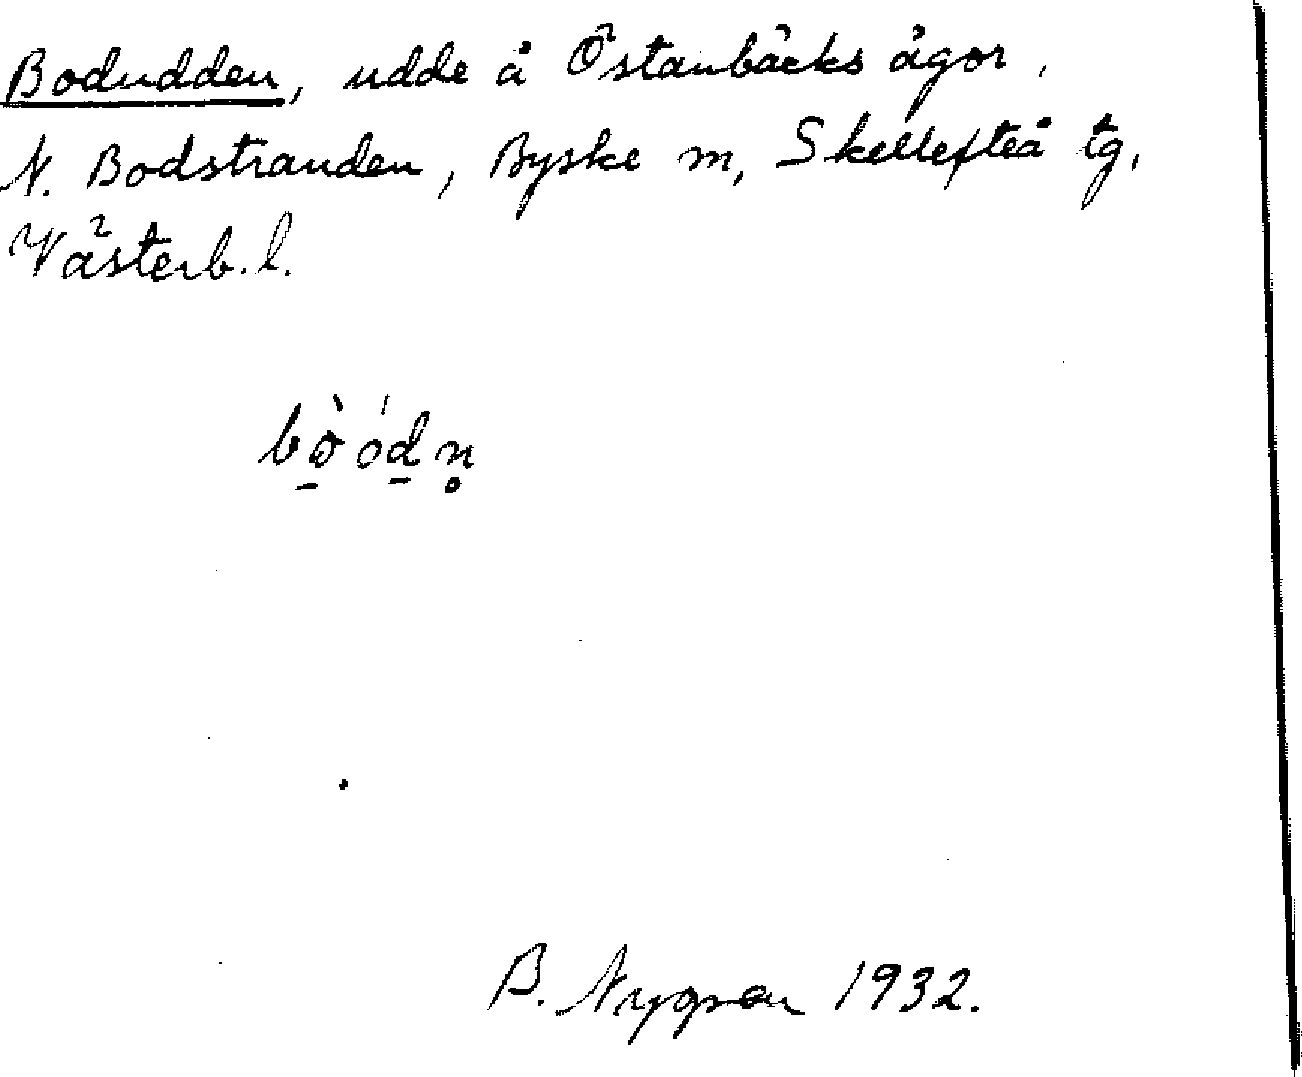 Bodudden, udde å Östanbäcks ägor,
N. Bodstranden, Byske sn, Skellefteå tg,
Västerb. l.
bò̠ód̠n̥
B. Nygren 1932.